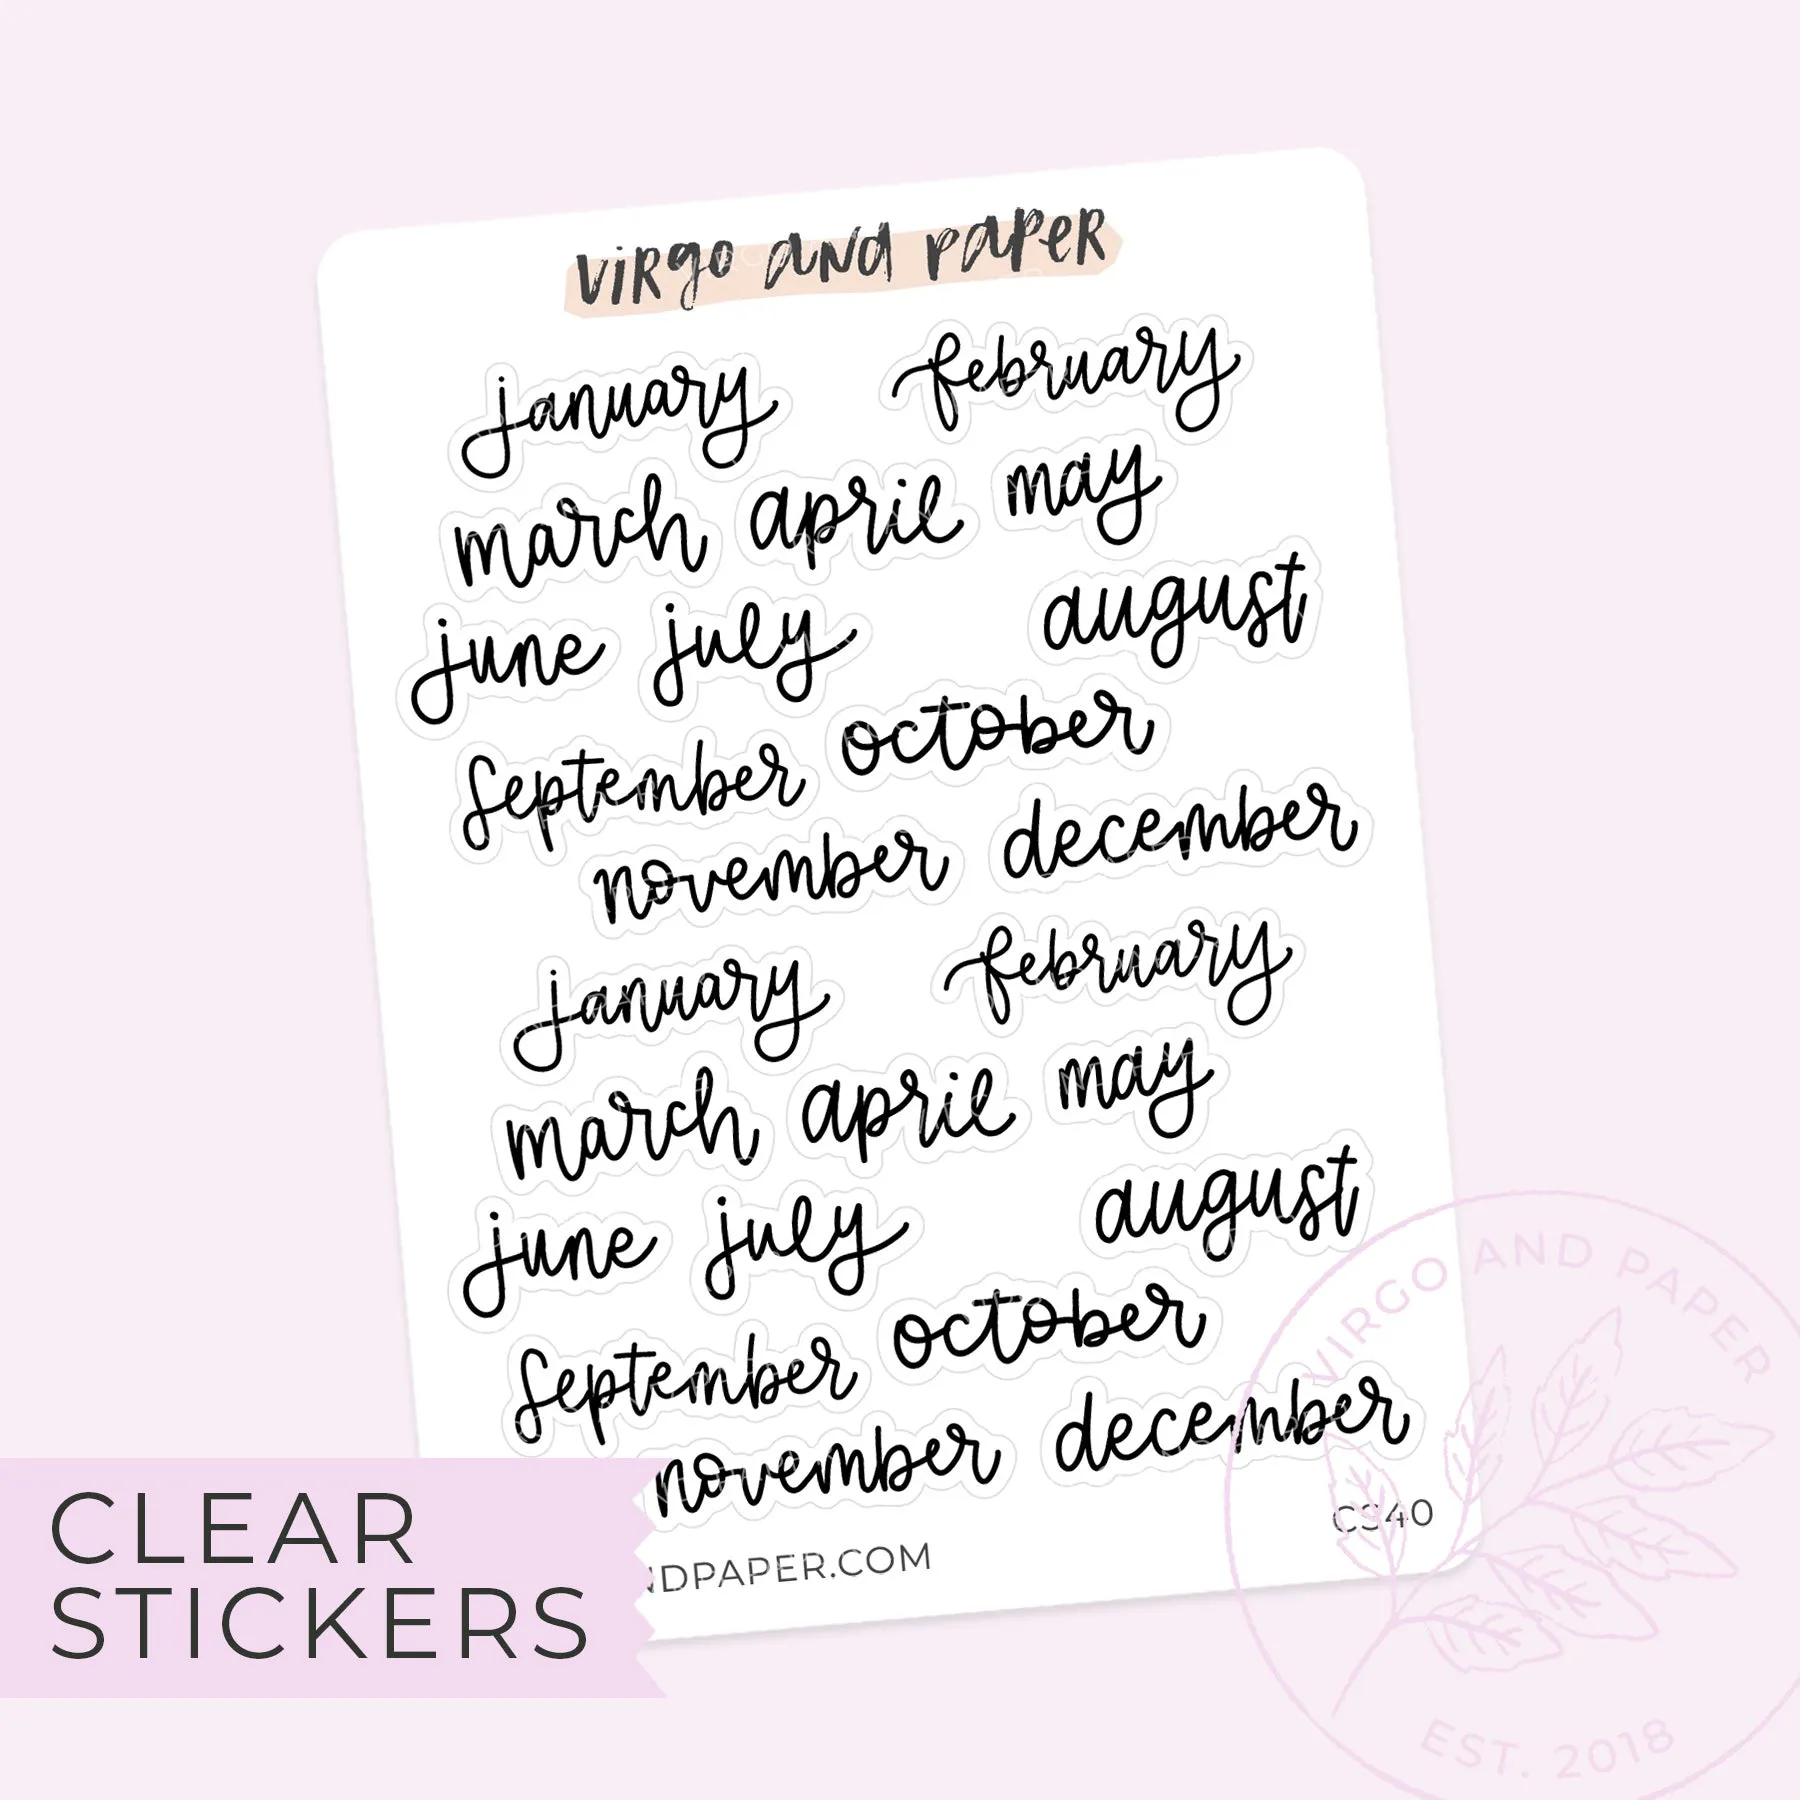 virgo and paper
january february
march april may
june july august
september october
november december
january february
march april may
june july august
september october
november december
CS40
NDPAPER.COM
CLEAR
STICKERS
VIRGO AND PAPER
EST. 2018